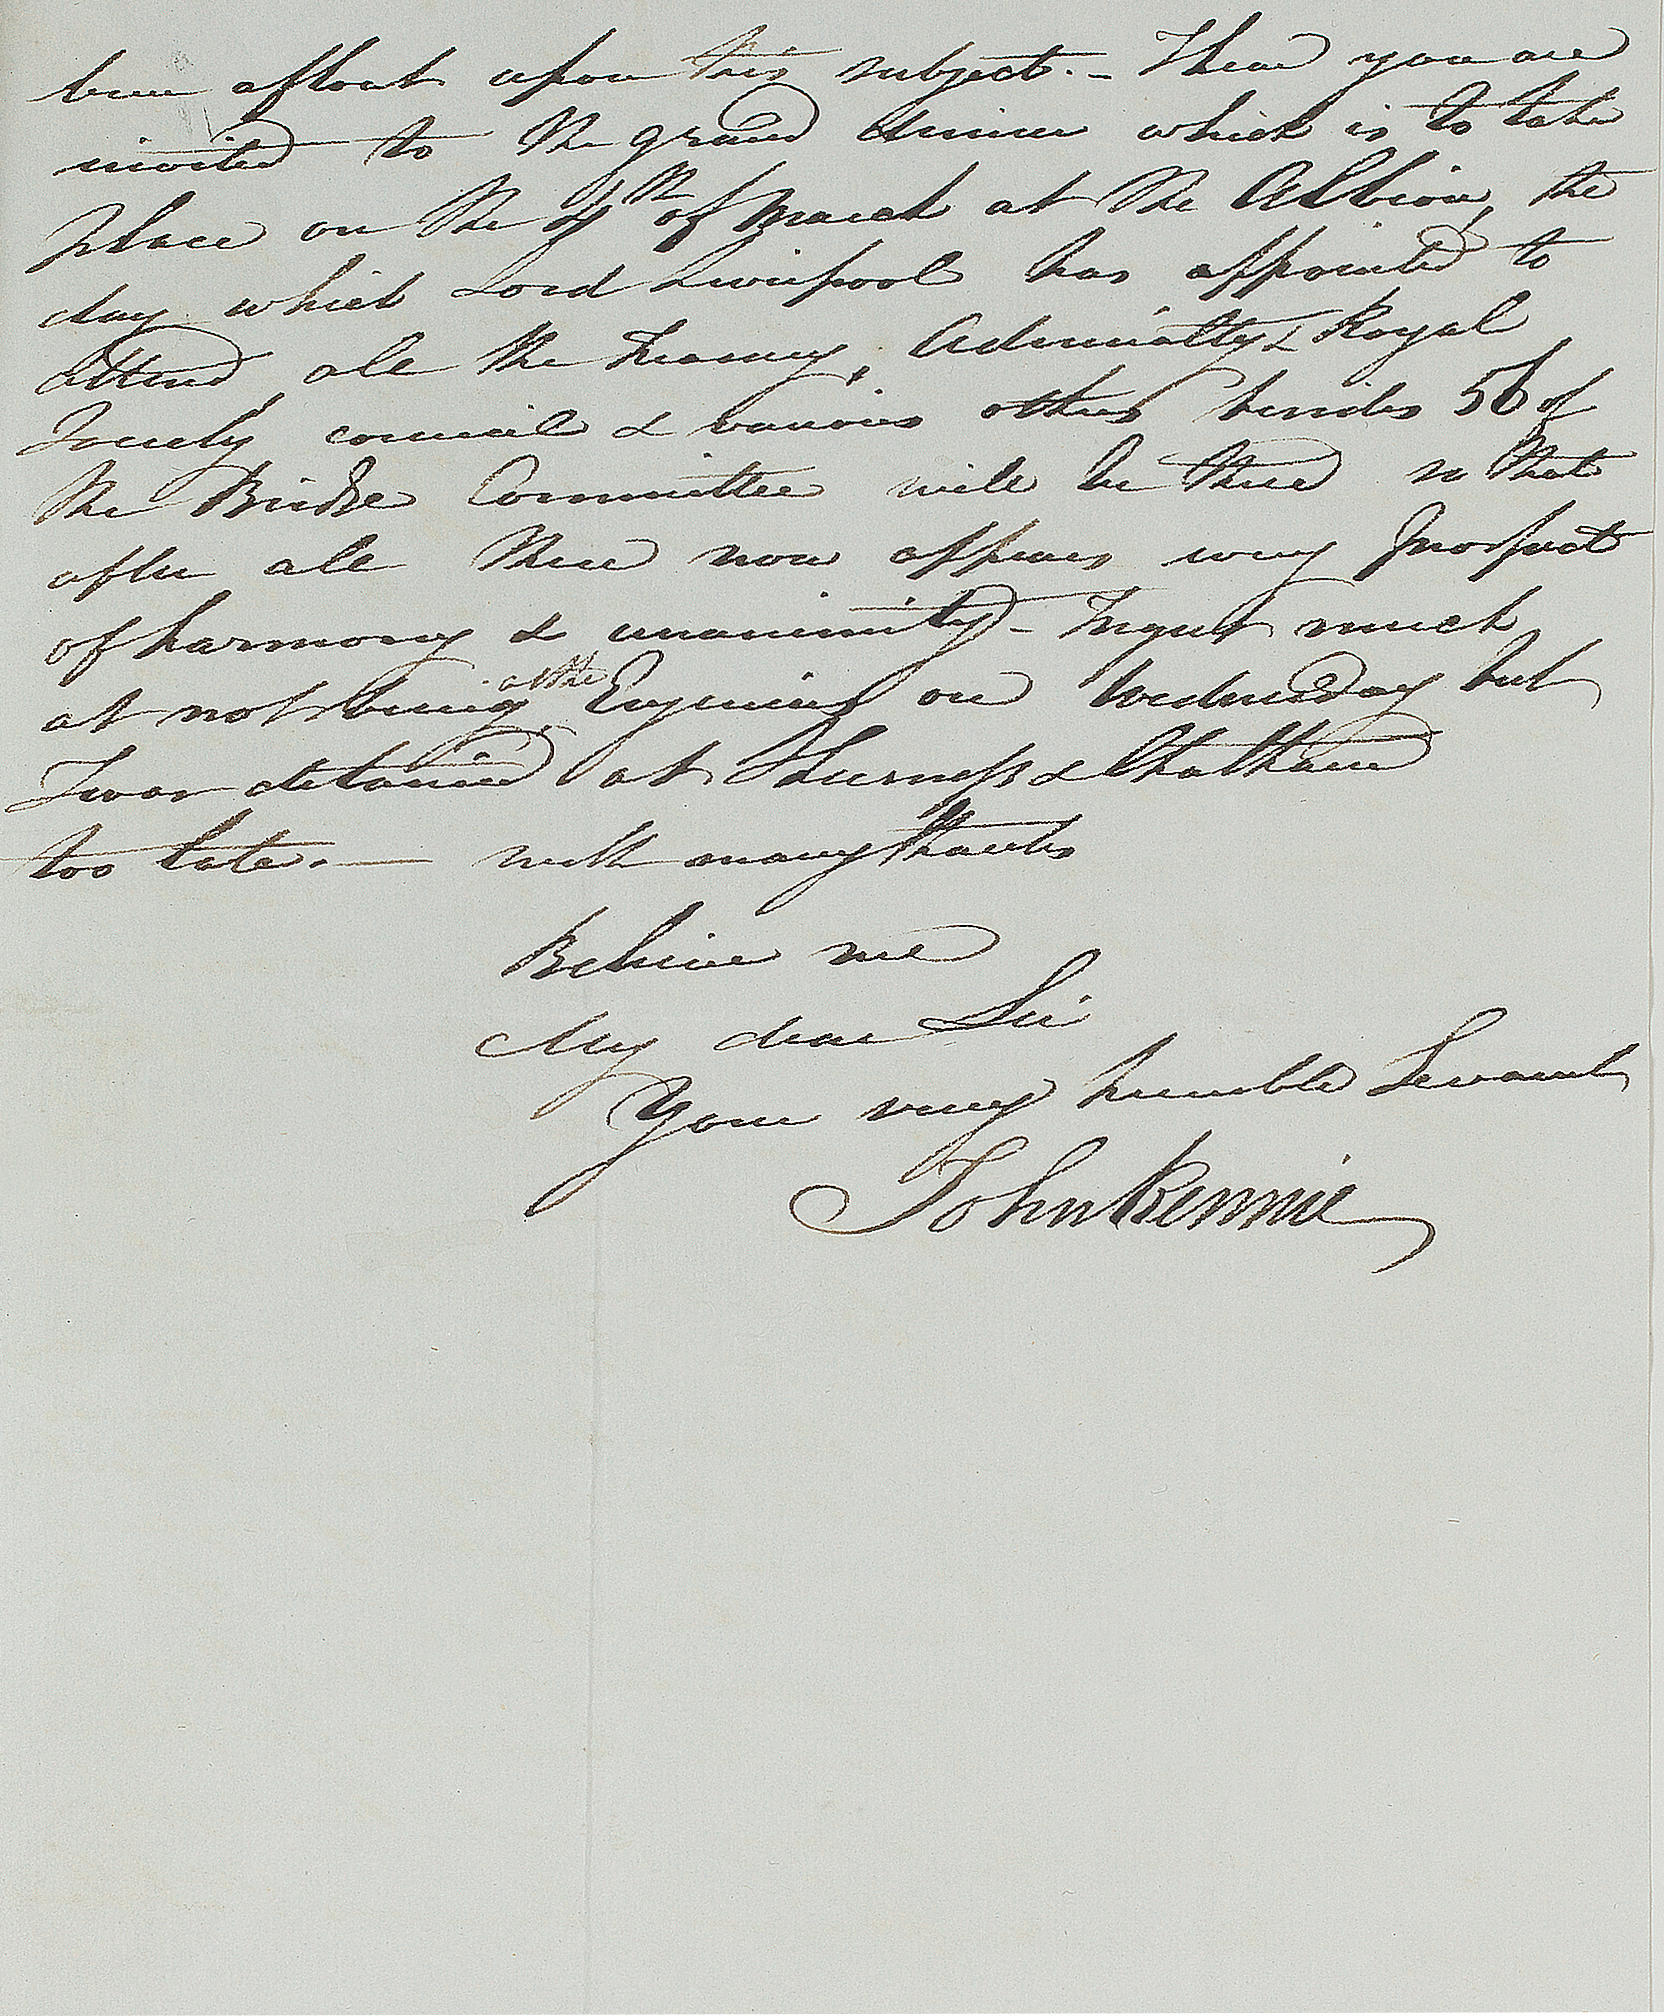 been afloat upon this subject. - I hear you are
invited to the grand dinner which is to take
place on the 4th of March at the Albion, the
day which Lord Liverpool has appointed to
attend all the Treasury, Admiralty & Royal
Society council & various others besides 56 of
the Bridge Committee will be there so that
after all there now appears every prospect
of harmony & unanimity - I regret much
at not being at the Engineers on Wednesday but
I was detained at Sheerness & Chatham
too late. — with many thanks
Believe me
My dear Sir
Your very humble Servant
John Rennie